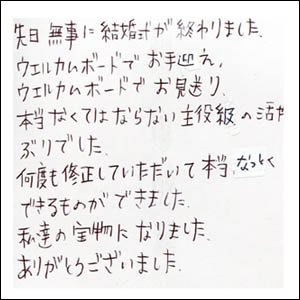 先日無事に結婚式が終わりました。
ウェルカムボードでお手迎え、
ウェルカムボードでお見送り。
本当なくてはならない主役級の活や
ぶりでした。
何度も修正していただいて本当、なっとく
できるものができました。
私達の宝物になりました。
ありがとうございました。